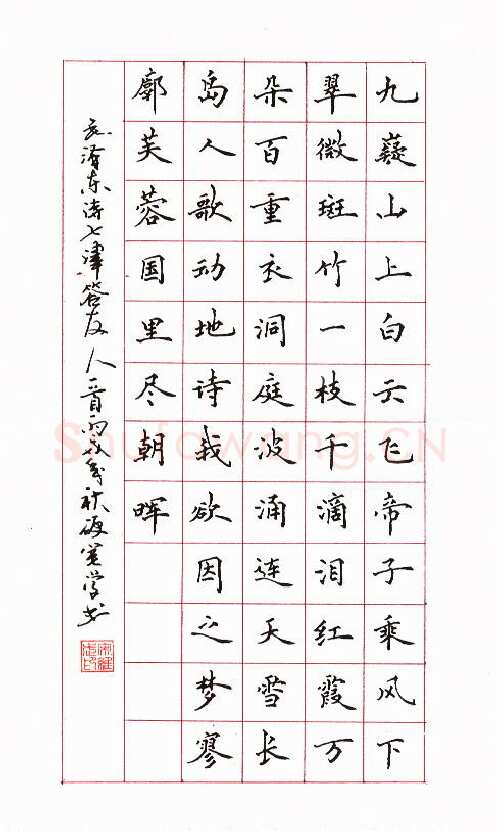 九嶷山上白云飞帝子乘风下
翠微斑竹一枝千滴泪红霞万
朵百重衣洞庭波涌连天雪长
岛人歌动地诗我欲因之梦寥
廓芙蓉国里尽朝晖
毛泽东诗七律答友人一首秋学书
Shufawang.CN